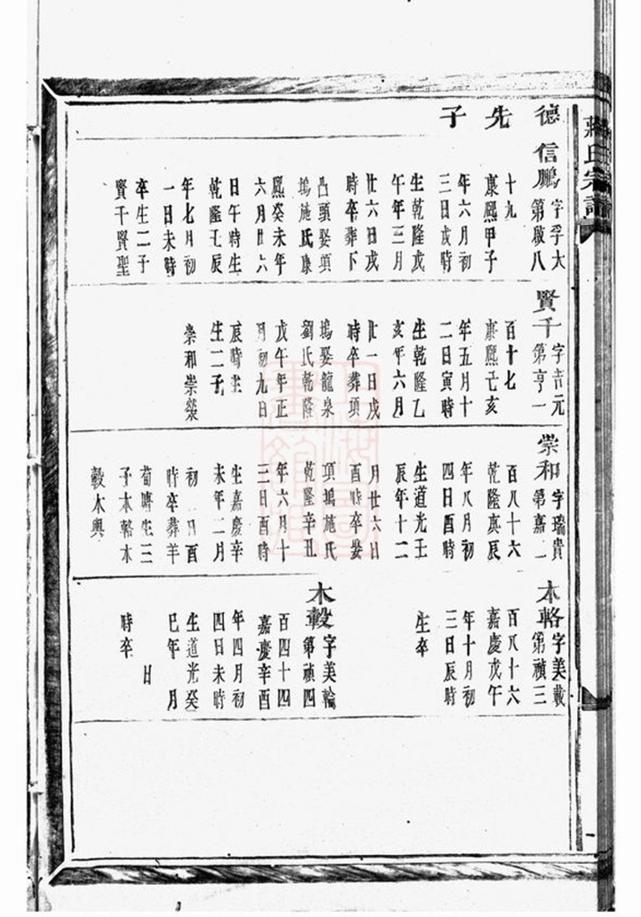 蔣氏宗譜
德先子
信鵬 字孚大 第啟八
十九
康熙甲子
年六月初
三日戌時
生乾隆戊
午年三月
廿六日戌
時卒葬下
凸頭娶項
塢施氏康
熙癸未年
六月廿六
日午時生
乾隆壬辰
年七月初
一日未時
卒生二子
賢千賢聖
賢千 字吉元 第亨一
百十七
康熙己亥
年五月十
二日寅時
生乾隆乙
亥年六月
廿一日戌
時卒葬項
塢娶龍泉
劉氏乾隆
戊午年正
月初九日
辰時生
生二子
崇和崇
崇和 字瑞貴 第嘉二
百八十六
乾隆庚辰
年八月初
四日酉時
生道光壬
辰年十二
月廿六日
酉時卒娶
項塢施氏
乾隆辛丑
年六月十
三日酉時
生嘉慶辛
未年二月
初一日酉
時卒葬羊
生三
子木輅木
轂木輿
木輅 字美載 第禎三
百八十六
嘉慶戊午
年十月初
三日辰時
生卒
木轂 字美輪 第禎四
百四十四
嘉慶辛酉
年四月初
四日未時
生道光癸
巳年月
日
時卒